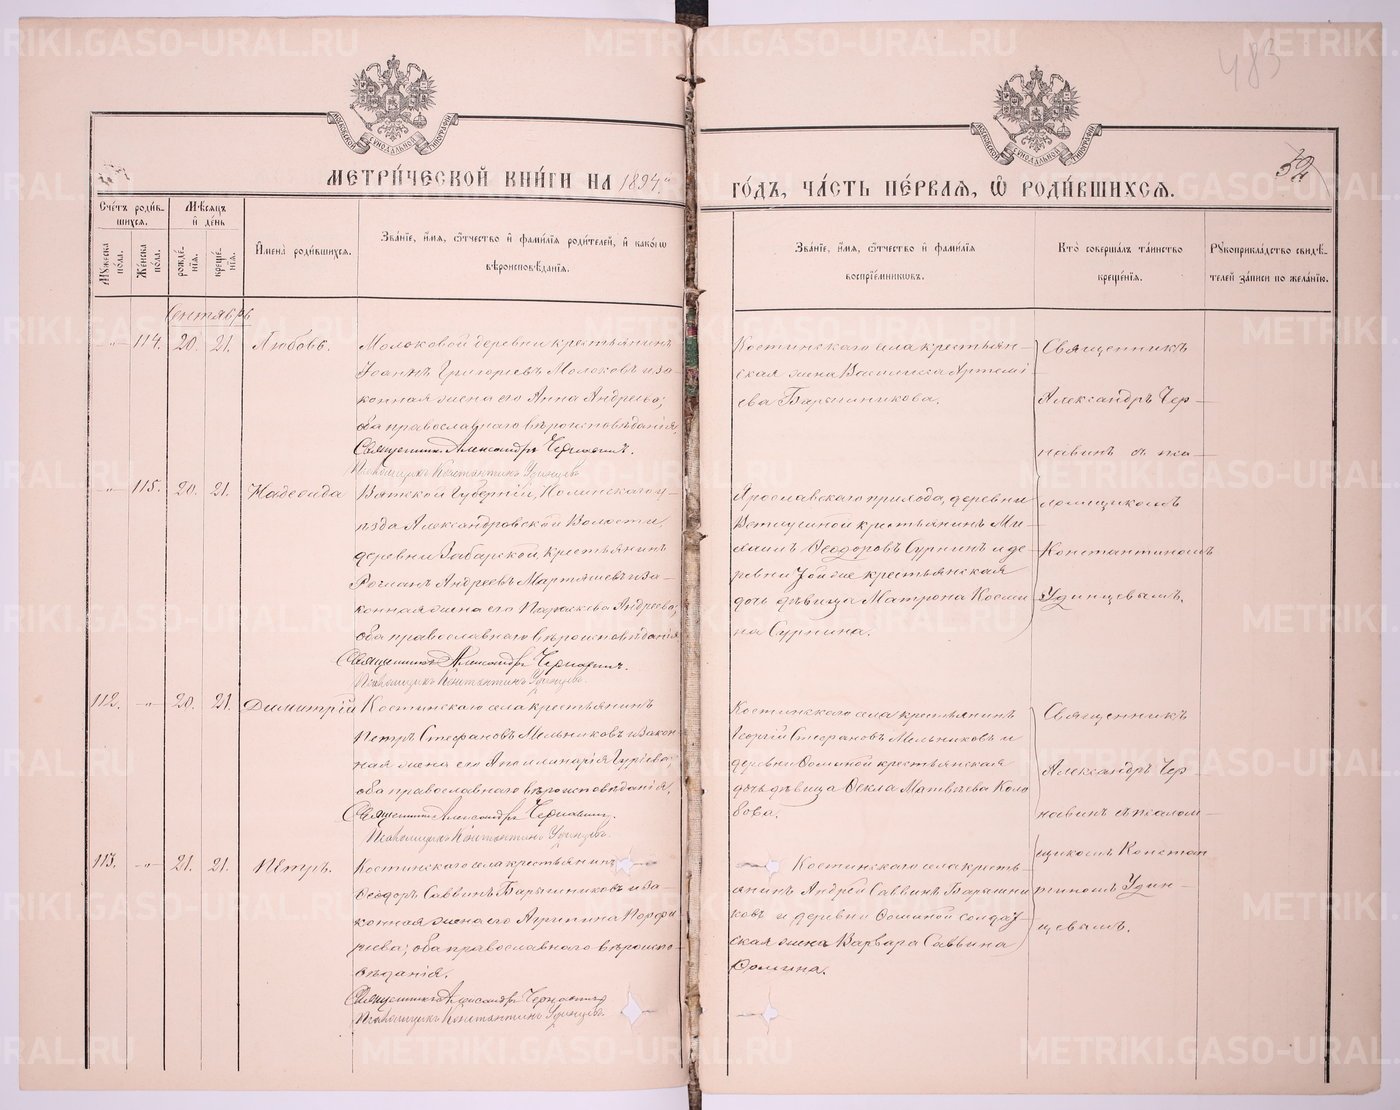 483
52
МЕТРИ́ЧЕСКОЙ КНИ́ГИ НА 1894.й
ГО́ДЪ, ЧА́СТЬ ПЕ́РВАЯ, Ѡ РОДИ́ВШИХСЯ.
Сче́тъ роди́вшихся.
Му́жеска по́ла.
Же́нска по́ла.
Мѣ́сяцъ и де́нь
рожде́нія.
креще́нія.
И҆мена̀ роди́вшихся.
Зва́ніе, и҆́мя, ѻ҆́тчество и҆ фами́лія роди́телей, и҆ како́гѡ
вѣроисповѣ́данія.
Зва́ніе, и҆́мя, ѻ҆́тчество и҆ фами́лія
воспрїе́мниковъ.
Кто̀ соверша́лъ та́инство
креще́нія.
Рꙋкоприкла́дство свидѣ́-
телей за́писи по жела́нію.
Сентябрь
„ 114. 20. 21. Любовь.
Молоковой деревни крестьянинъ
Іоаннъ Григорьевъ Молоковъ и за-
конная жена его Анна Андреева;
оба православнаго вѣроисповѣданія,
Священникъ Александръ Чернавинъ.
Псаломщикъ Константинъ Удинцевъ
Костинскаго села крестьян-
ская жена Василиса Артемі
ева Барышникова.
Священникъ
Александръ Чер-
навинъ съ пса-
ломщикомъ
Константиномъ
Удинцевымъ.
„ 115. 20. 21. Надежда
Вятской Губерніи, Нолинскаго у-
ѣзда Александровской Волости,
деревни Забарской крестьянинъ
Романъ Андреевъ Мартяшевъ и за-
конная жена его Параскева Андреева;
оба православнаго вѣроисповѣданія
Священникъ Александръ Чернавинъ.
Псаломщикъ Константинъ Удинцевъ.
Ярославскаго прихода, деревни
Ветлугиной крестьянинъ Ми-
хаилъ Ѳеодоровъ Сурнинъ и де
ревни крестьянская
дочь дѣвица Матрона Косми
на Сурнина.
112. „ 20. 21. Димитрій
Костинскаго села крестьянинъ
Петръ Стефановъ Мельниковъ и закон
ная жена его Аполлинарія Гуріева;
оба православнаго вѣроисповѣданія,
Священникъ Александръ Чернавинъ.
Псаломщикъ Константинъ Удинцевъ.
Костинскаго села крестьянинъ
Георгій Стефановъ Мельниковъ и
деревни Ѳоминой крестьянская
дочь дѣвица Ѳекла Матвѣева Коло
бова.
Священникъ
Александръ Чер
навинъ съ псалом-
щикомъ Констан
тиномъ Удин-
цевымъ.
113. „ 21. 21. Петръ.
Костинскаго села крестьянинъ
Ѳеодоръ Саввинъ Барышниковъ и за-
конная жена его Агрипина Порфи
рьева; оба православнаго вѣроиспо-
вѣданія.
Священникъ Александръ Чернавинъ
Псаломщикъ Константинъ Удинцевъ
Костинскаго села кресть
янинъ Андрей Саввинъ Барышни
ковъ и деревни Ѳоминой солдат
ская жена Варвара Саввина
Ѳомина.